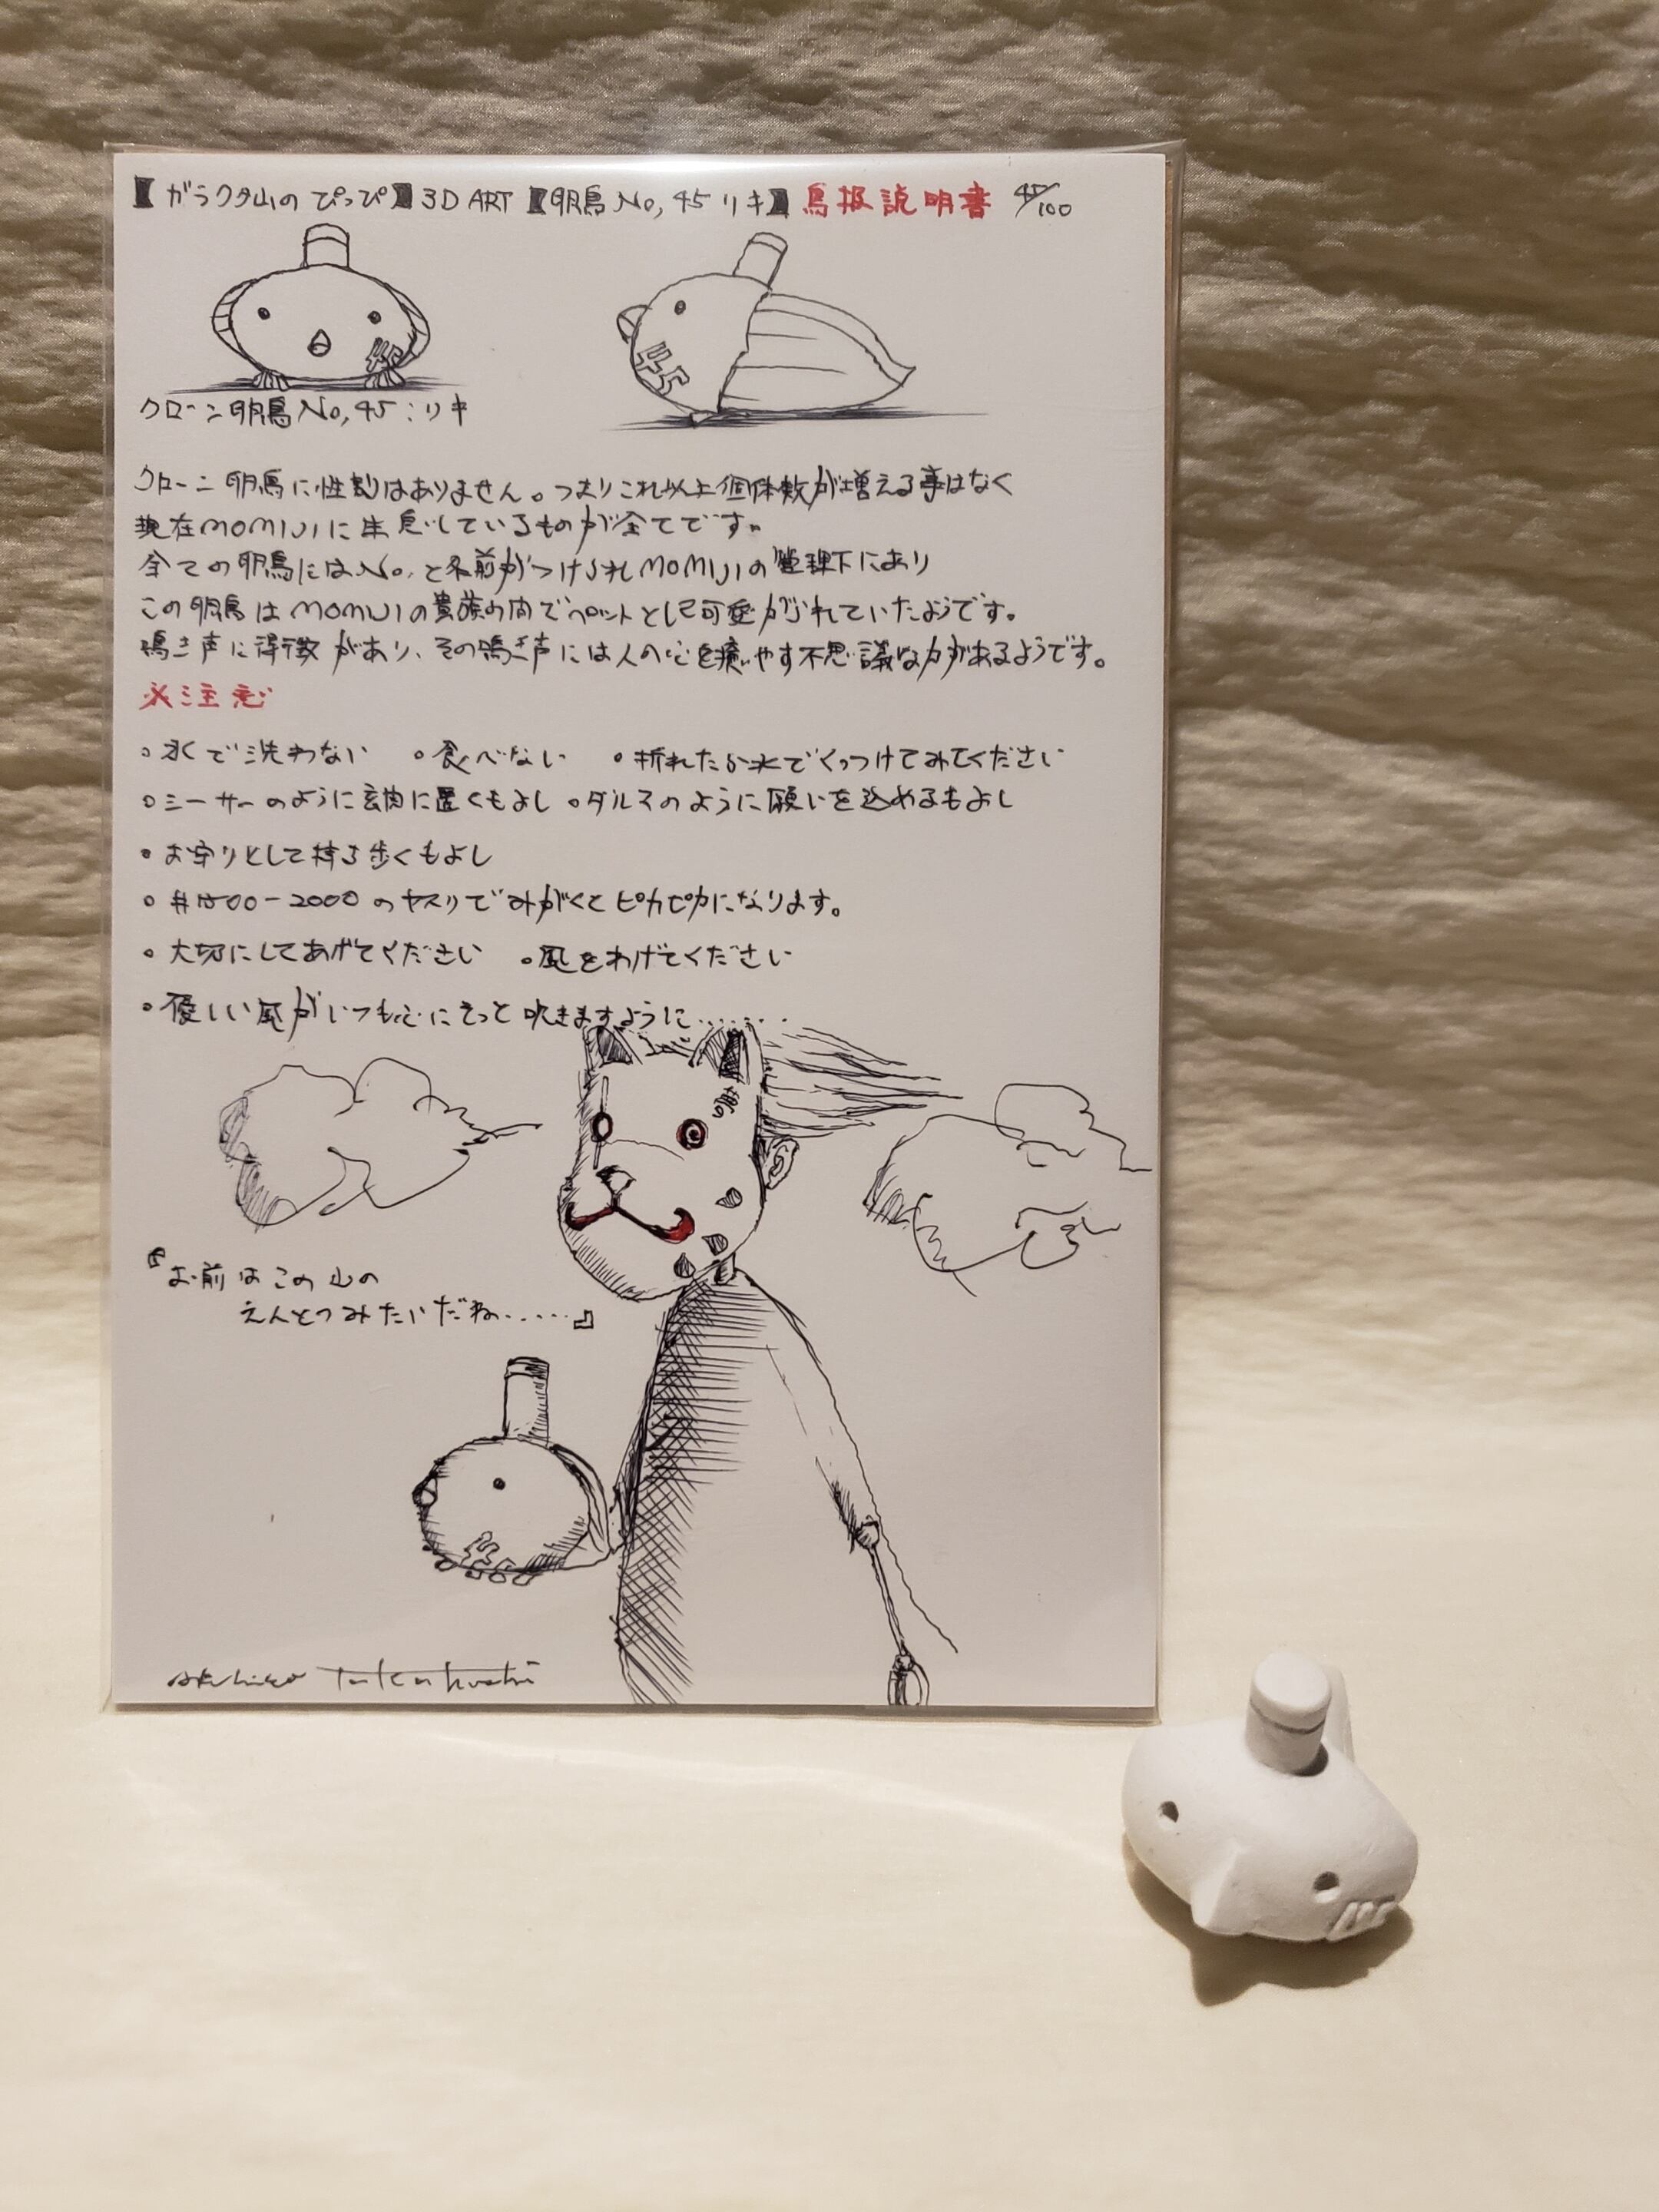 【ガラクタ山のぴっぴ】3D ART【明鳥No,45リキ】鳥扱説明書 45/100
45
45
クローン明鳥No,45:リキ
クローン明鳥に性別はありません。つまりこれ以上個体数が増える事はなく
現在MOMIJIに生息しているものが全てです。
全ての明鳥にはNo,と名前がつけられMOMIJIの管理下にあり
この明鳥はMOMIJIの貴族の間でペットとして可愛がられていたようです。
鳴き声に特徴があり、その鳴き声には人の心を癒やす不思議な力があるようです。
※注意
○水で洗わない ○食べない ○折れたら水でくっつけてみてください
○シーサーのように玄関に置くもよし ○ダルマのように願いを込めるもよし
○お守りとして持ち歩くもよし
○#1500-2000のヤスリでみがくとピカピカになります。
○大切にしてあげてください ○風をあげてください
○優しい風がいつも心にそっと吹きますように........
『お前はこの山の
えんとつみたいだね......』
45